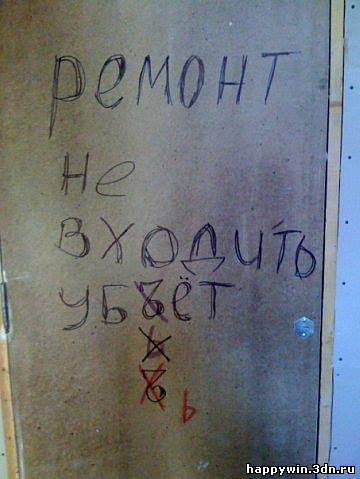 ремонт
не
входить
убъёт
ъ
ь
happywin.3dn.ru